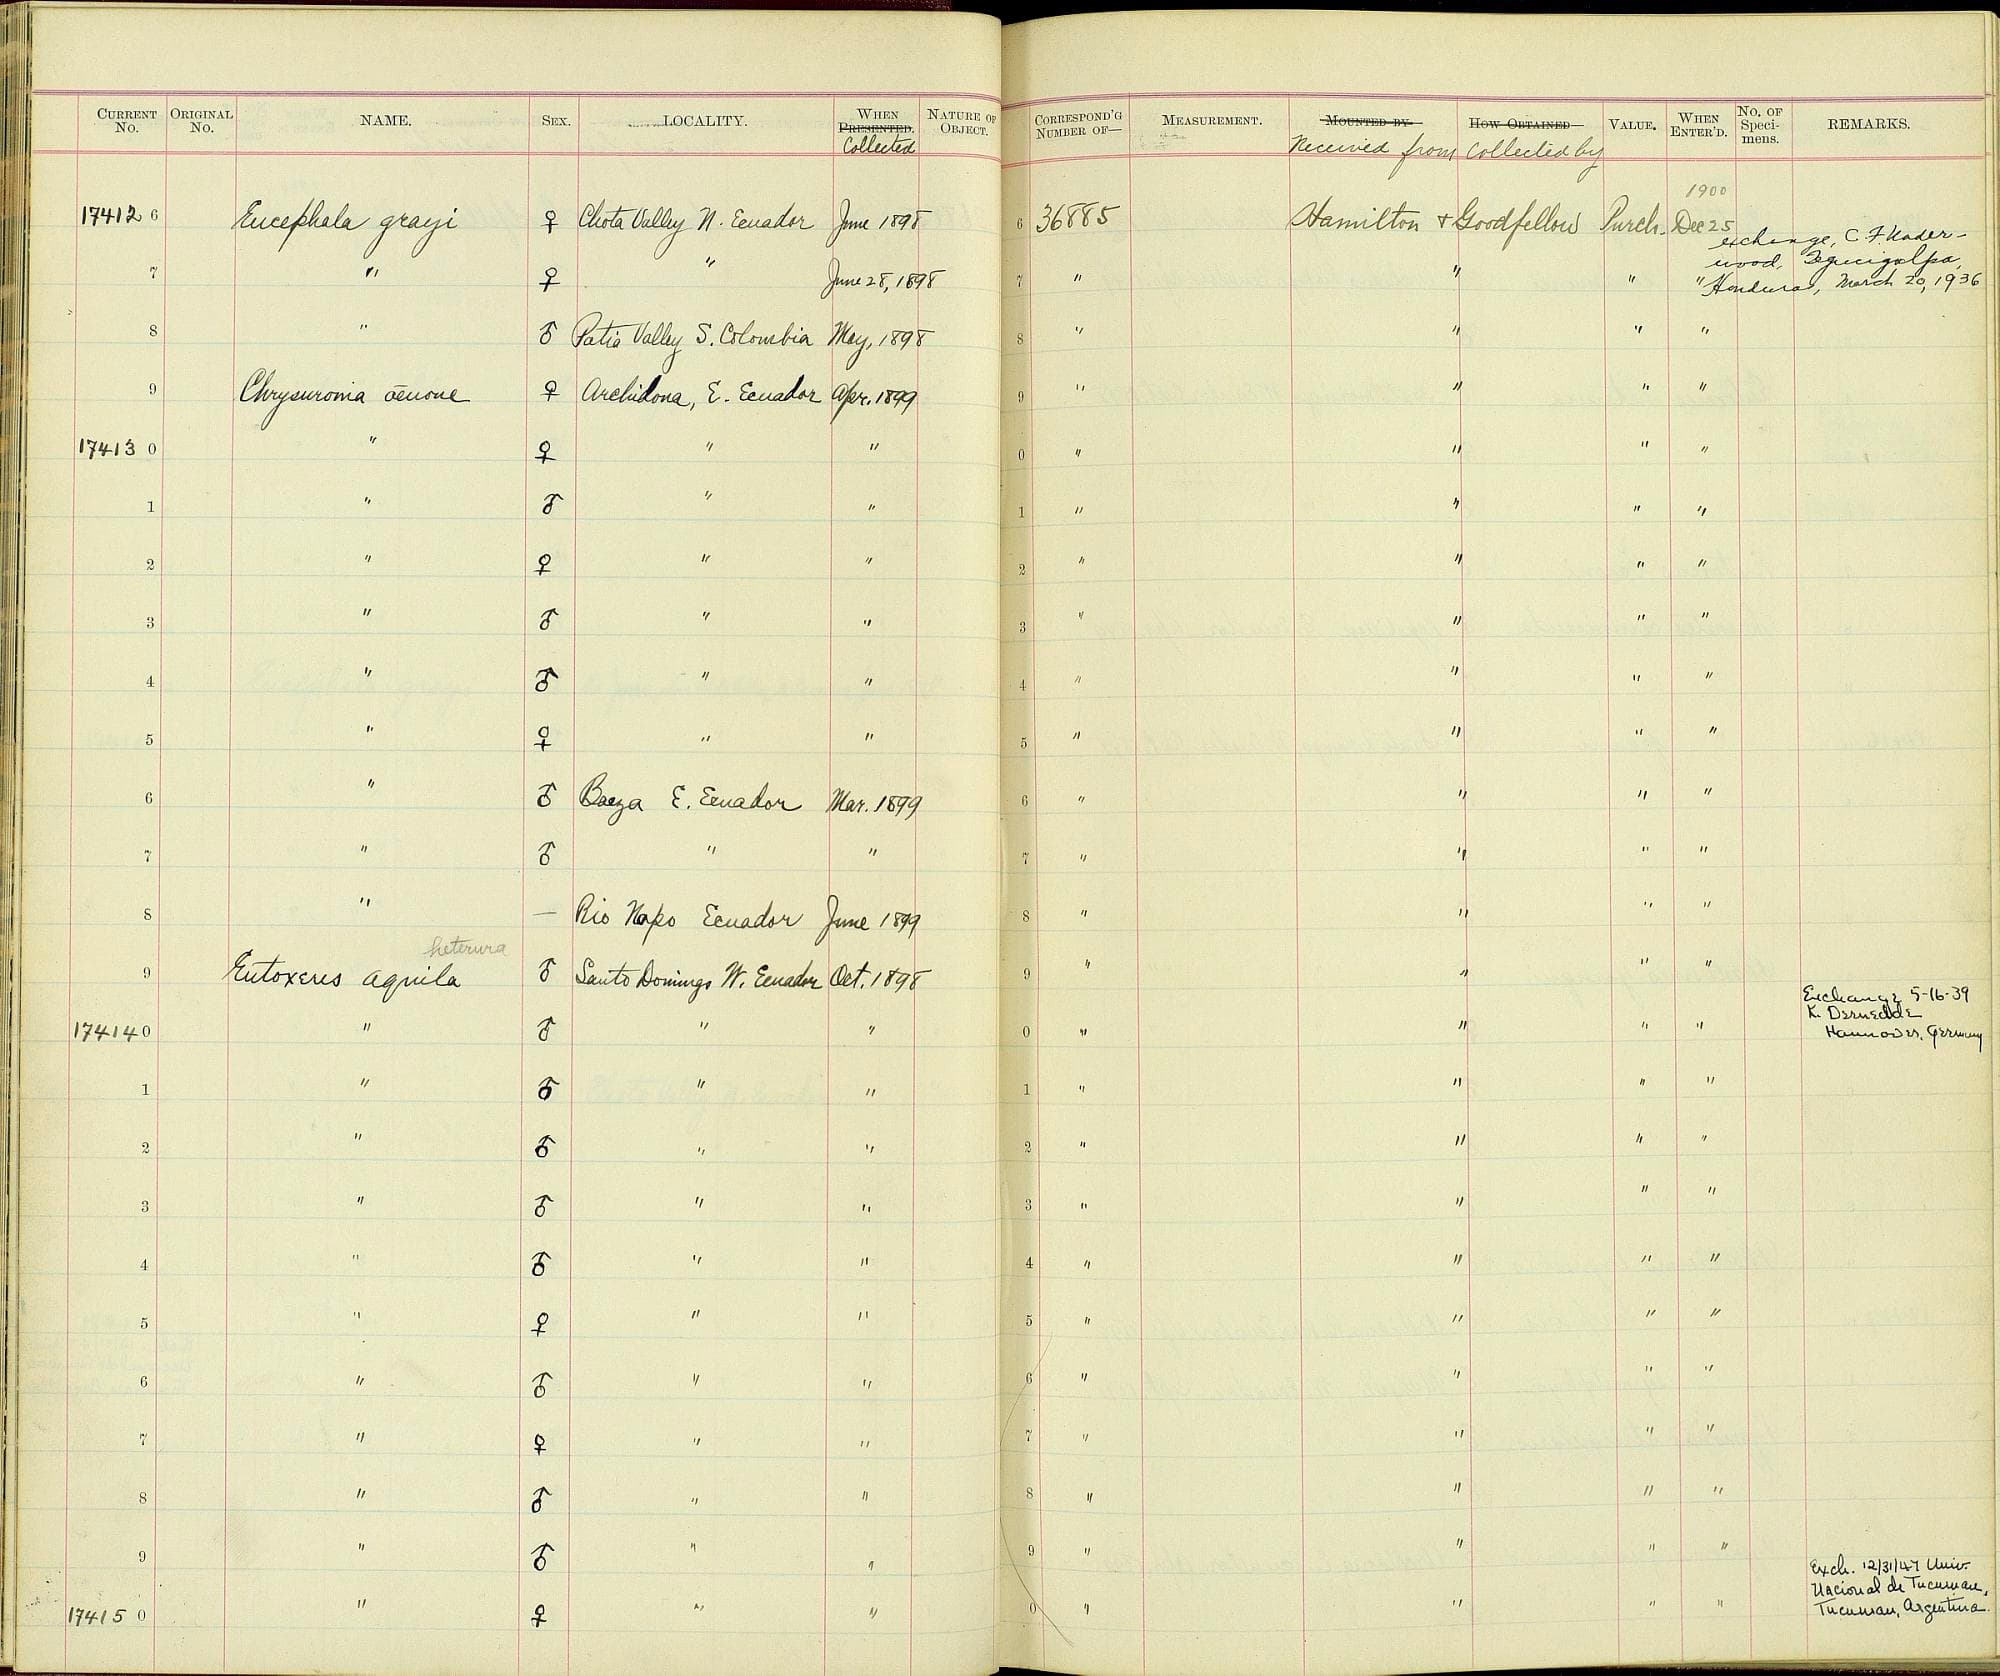 CURRENT No. ORIGINAL No. NAME. SEX. LOCALITY. WHEN PRESENTED. Collected NATURE OF OBJECT. CORRESPOND'G NUMBER OF— MEASUREMENT. MOUNTED BY Received from HOW OBTAINED Collected by VALUE. WHEN ENTER'D. No. OF Speci-mens. REMARKS.
1900
17412 6 Eucephala grayi ♀ Chota Valley N. Ecuador June 1898 6 36885 Hamilton & Goodfellow Purch. Dec 25
exchange, C. F. Under-
wood, Tegucigalpa,
7 " ♀ " June 28, 1898 7 " " " " Honduras, March 20, 1936
8 " ♂ Patia Valley S. Colombia May, 1898 8 " " " "
9 Chrysuronia oenone ♀ Archidona, E. Ecuador Apr. 1899 9 " " " "
17413 0 " ♀ " " 0 " " " "
1 " ♂ " " 1 " " " "
2 " ♀ " " 2 " " " "
3 " ♂ " " 3 " " " "
4 " ♂ " " 4 " " " "
5 " ♀ " " 5 " " " "
6 " ♂ Baeza E. Ecuador Mar. 1899 6 " " " "
7 " ♂ " " 7 " " " "
8 " — Rio Napo Ecuador June 1899 8 " " " "
heterura
9 Eutoxeres aquila ♂ Santo Domingo W. Ecuador Oct. 1898 9 " " " "
Exchange 5-16-39
K. Dernedde
17414 0 " ♂ " " 0 " " " " Hannover, Germany
1 " ♂ " " 1 " " " "
2 " ♂ " " 2 " " " "
3 " ♂ " " 3 " " " "
4 " ♂ " " 4 " " " "
5 " ♀ " " 5 " " " "
6 " ♂ " " 6 " " " "
7 " ♀ " " 7 " " " "
8 " ♂ " " 8 " " " "
9 " ♂ " " 9 " " " "
Exch. 12/31/47 Univ.
Nacional de Tucuman,
17415 0 " ♀ " " 0 " " " " Tucuman, Argentina.